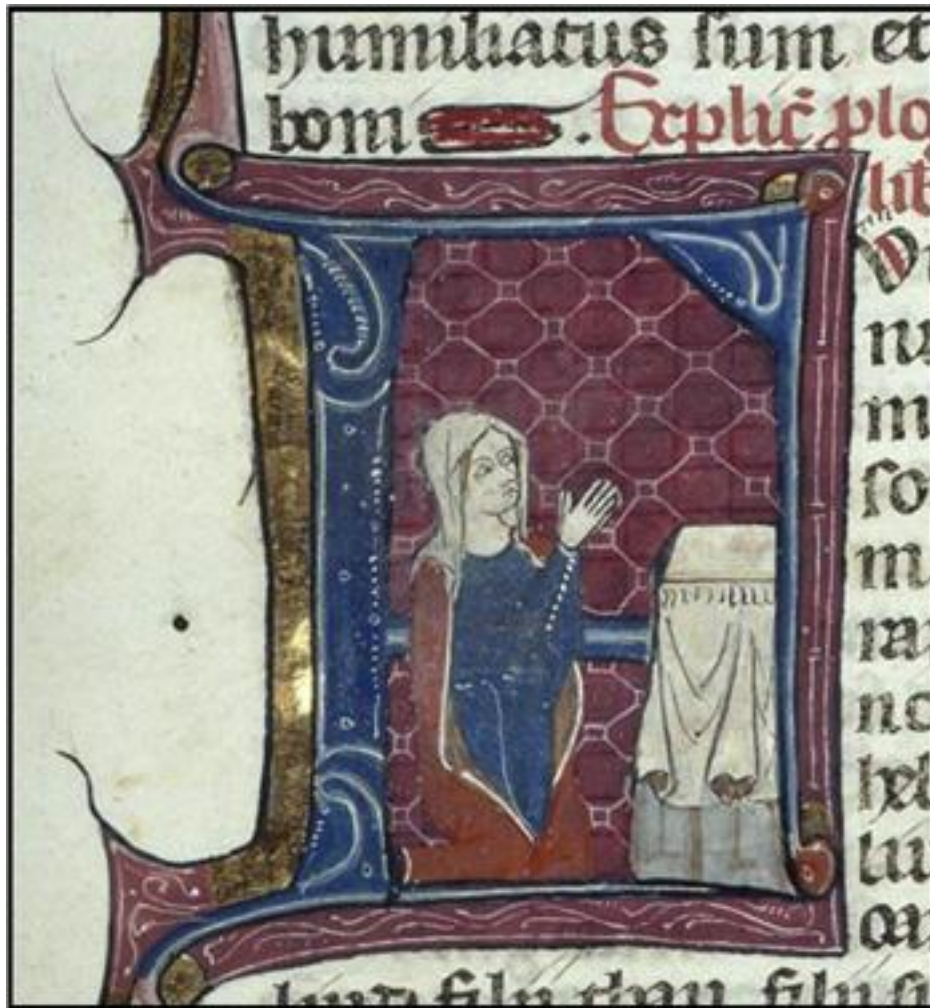 humiliatus sum et
boni . Explic̄ plo
lib
F
m
so
m
ra
no
hel
liu
filii thau filii